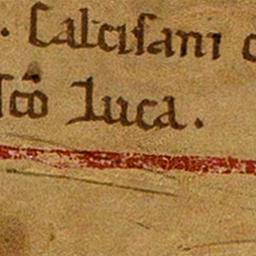 . Calcisani
sc̄o luca.